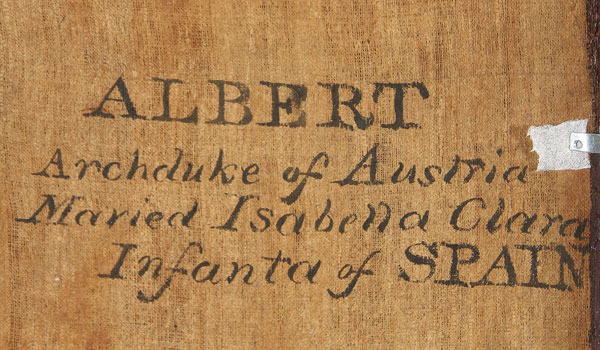 ALBERT
Archduke of Austria
Maried Isabella Clara
Infanta of SPAIN